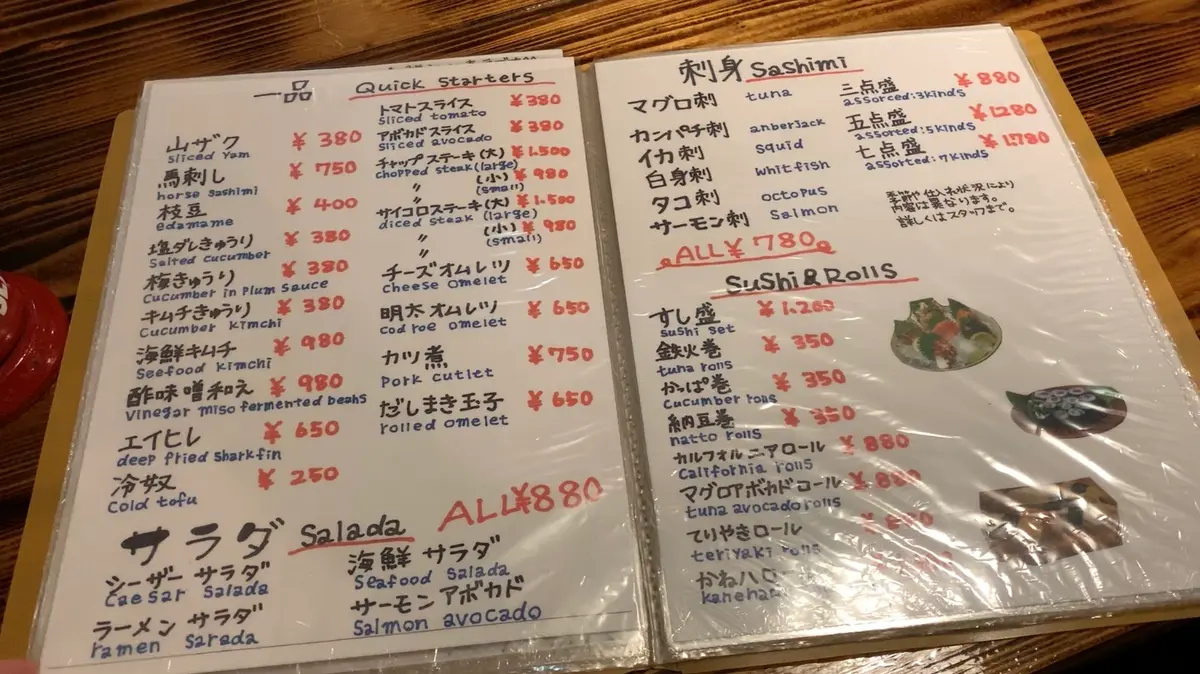 一品 Quick Starters
山ザク ¥380
Sliced Yam
馬刺し ¥750
horse sashimi
枝豆 ¥400
edamame
塩ダレきゅうり ¥380
Salted cucumber
梅きゅうり ¥380
Cucumber in Plum Sauce
キムチきゅうり ¥380
Cucumber Kimchi
海鮮キムチ ¥980
Seefood Kimchi
酢味噌和え ¥980
Vinegar miso fermented beans
エイヒレ ¥650
deep fried Sharkfin
冷奴 ¥250
Cold tofu
トマトスライス ¥380
Sliced tomato
アボカドスライス ¥380
Sliced avocado
チャップステーキ(大) ¥1.500
chopped steak (large)
〃 (小) ¥980
(small)
サイコロステーキ(大) ¥1.500
diced steak (large)
〃 (小) ¥980
(small)
チーズオムレツ ¥650
Cheese omelet
明太オムレツ ¥650
Cod roe omelet
カツ煮 ¥750
Pork cutlet
だしまき玉子 ¥650
rolled omelet
サラダ Salada ALL¥880
シーザーサラダ
Caesar Salada
ラーメンサラダ
ramen Sarada
海鮮サラダ
Seafood Salada
サーモンアボカド
Salmon avocado
刺身 Sashimi
マグロ刺 tuna
カンパチ刺 anberjack
イカ刺 Squid
白身刺 Whitfish
タコ刺 octopus
サーモン刺 Salmon
ALL¥780
三点盛 ¥880
assorced:3kinds
五点盛 ¥1280
assorted:5kinds
七点盛 ¥1.780
assorted:7kinds
季節や仕入れ状況により
内容は異なります。
詳しくはスタッフまで。
Sushi&Rolls
すし盛 ¥1.200
sushi set
鉄火巻 ¥350
tuna rolls
かっぱ巻 ¥350
Cucumber rolls
納豆巻 ¥350
natto rolls
カルフォルニアロール ¥880
California rolls
マグロアボカドロール ¥880
tuna avocado rolls
てりやきロール
teriyaki rolls